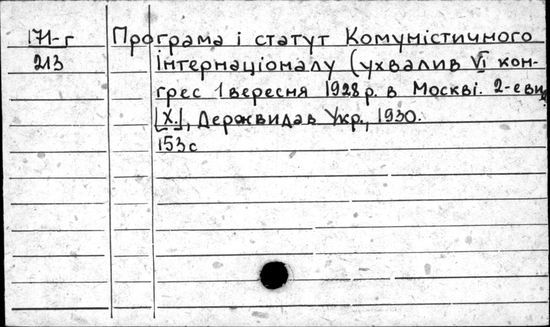 171-г Програма і статут Комуністичного
213 інтернаціоналу (ухвалив VI кон-
грес 1 вересня 1928 р. в Москві. 2-е вид.
[Х.], Держвидав Укр., 1930.
153 с